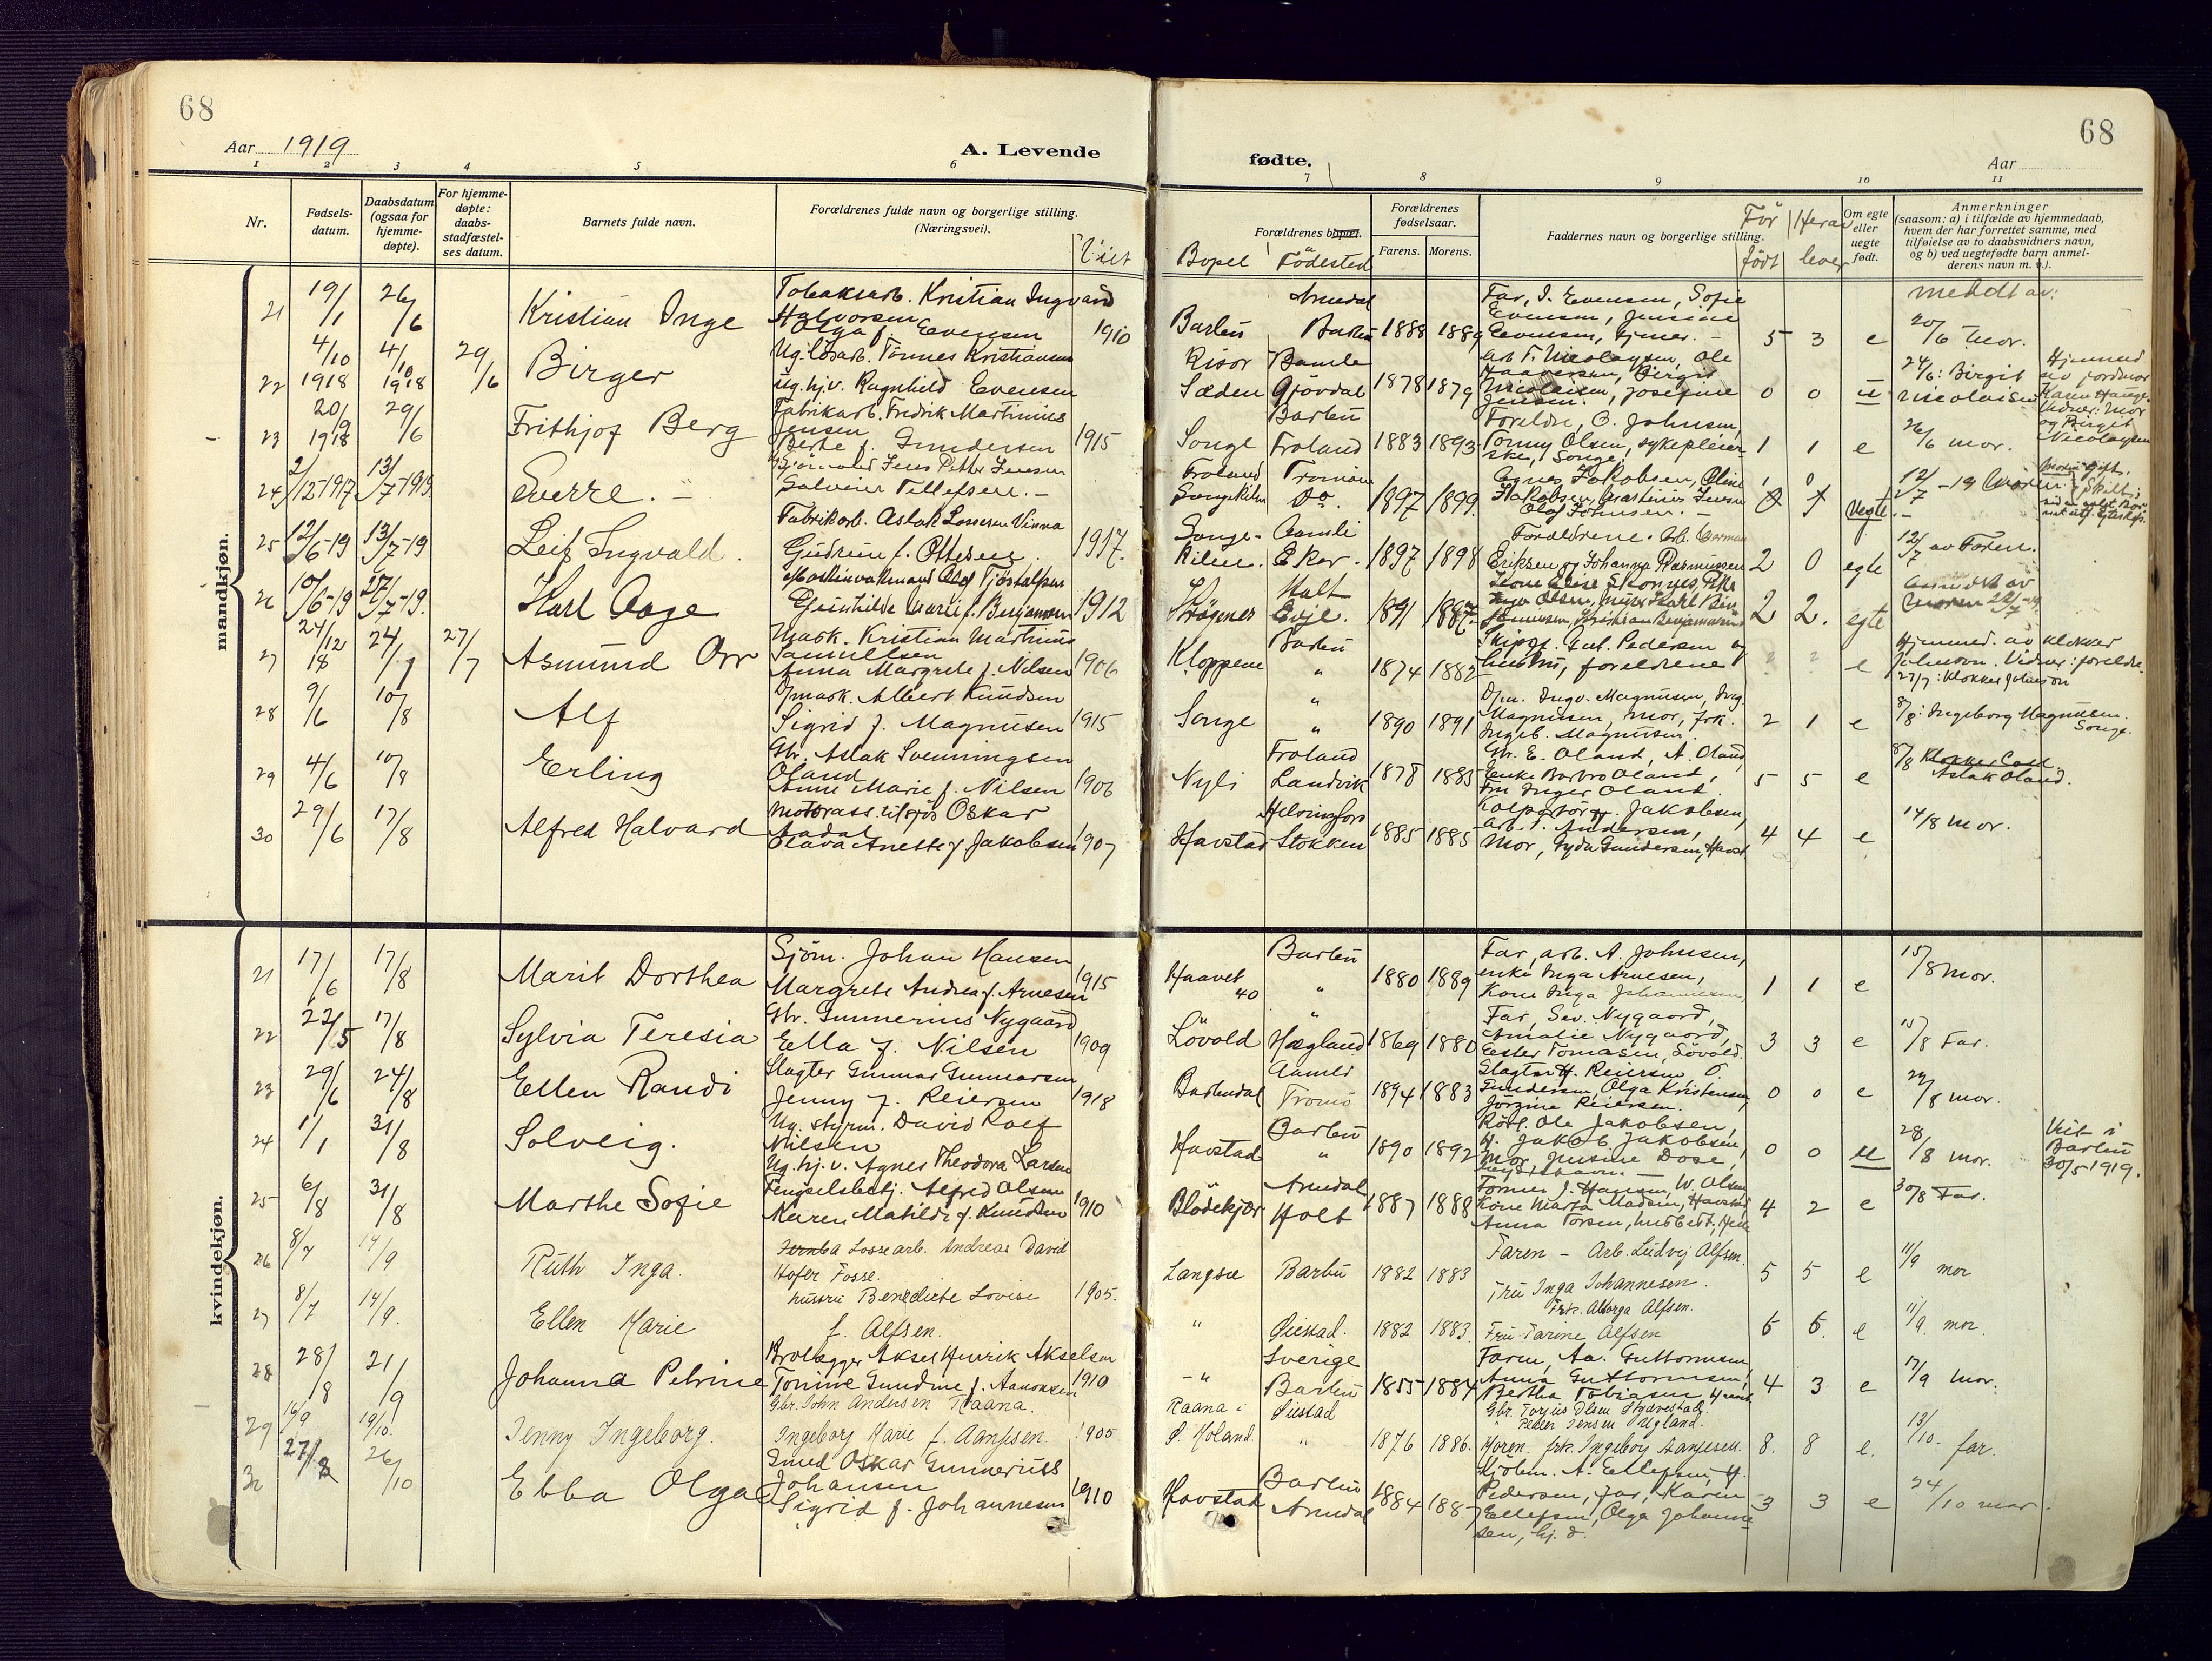 68
68
Aar 1919
A. Levende
fødte.
Aar
1 2 3 4 5 6 7 8 9 10 11
Nr.
Fødsels-
datum.
Daabsdatum
(ogsaa for
hjemme-
døpte).
For hjemme-
døpte:
daabs-
stadfæstel-
ses datum.
Barnets fulde navn.
Forældrenes fulde navn og borgerlige stilling.
(Næringsvei).
Viet
Forældrenes bopæl.
Bopel Födested
Forældrenes
fødselsaar.
Farens. Morens.
Faddernes navn og borgerlige stilling.
Før født
Herav lever
Om egte
eller
uegte
født.
Anmerkninger
(saasom: a) i tilfælde av hjemmedaab,
hvem der har forrettet samme, med
tilføielse av to daabsvidners navn,
og b) ved uegtefødte barn anmel-
derens navn m. v.).
meddt av:
mandkjøn.
21 19/1 26/6 Kristian Inge
Tobaksarb. Kristian Ingvard
Halvorsen
Olga f. Evensen 1910
Barbu
Arendal
Barbu
1888 1889
Far, I. Evensen, Sofie
Evensen, Jensine
Evensen, hjmer. –
5 3 e
20/6 mor.
22 4/10 1918 4/10 1918 29/6 Birger
Ug. lösarb. Tönnes Kristiansen
ug. hj.v. Ragnhild Evensen
Risør
Sæden
Bamle
Gjövdal
1878 1879
Arb. T. Nicolaysen, Ole
Haaversen, Birgit
Nicolaisen, Josefine
Jensen.
0 0 u
24/6: Birgit
Nicolaisen
Hjemmed
av jordmor
Karen Hauge.
Vidner: Mor
og Birgit
Nicolaysen
23 20/9 1918 29/6 Frithjof Berg
Fabrikarb. Fredrik Martinius
Jensen
Berthe f. Gundersen 1915
Songe
Barbu
Froland
1883 1893
Foreldre, O. Johnsen,
Tommy Olsen, sykepleier-
ske, Songe,
1 1 e
26/6 mor.
24 2/12-1917 13/7-1919 Sverre. –
Jens Petter Jensen
Solveier Tellefsen. –
Froland
Songekilen
Tromøen
Do.
1897 1899.
Agnes Jakobsen, Oline
Jakobsen, Martinius Jensen
Olaf Johnsen. –
1 0
uegte
12/7 – 19 Moren
25 12/6-19 13/7-19 Leif Ingvald.
Fabrikarb. Aslak Lossesen Vinna
Gudrun f. Ottesen. 1917.
Songe-
kilen.
Aamli
Eker.
1897 1898
Foreldrene. Arb. Herman
Eriksen og Johanna Rasmussen
2 0 egte
12/7 av Faren.
26 10/6-19 27/7-19. Karl Aage
Maskinvakmand Olaf Tjöstolfsen
Gunhilde Marie f. Benjaminsen 1912
Strögenes
Holt
Evje.
1891 1887
2 2. egte
27 24/12 18 24/1 27/7 Asmund Orr
Mask. Kristian Martinius
Samuelsen
Anna Margrete f. Nilsen 1906
Kloppene
Barbu
"
1874 1882
Skipsf. Ant. Pedersen og
hustru, foreldrene
e
Hjemmed. av klokker
Johnson. Vidner: foreldre.
27/7: klokker Johnson
28 9/6 10/8 Alf
Gmask. Albert Knudsen
Sigrid f. Magnusen 1915
Songe
"
"
1890 1891
Gm. Ingv. Magnusen, Ing.
Magnusen, mor, frk.
Ingeb. Magnusen.
2 1 e
8/8: Ingeborg Magnusen.
Songe.
29 4/6 10/8 Erling
Gbr. Aslak Svenningsen
Oland
Anne Marie f. Nilsen 1906
Nyli
Froland
Landvik
1878 1885
Gbr. E. Oland, A. Oland,
Enke Barbro Oland,
Fru Inger Oland.
5 5 e
8/8
Aslak Oland.
30 29/6 17/8 Alfred Halvard
Motorass. Oskar
Aadal
Olava Anette f. Jakobsen 1907
Havstad
Helsingfors
Stokken
1885 1885
Kolportör Jakobsen,
Arb. Andersen,
Mor, Gyda Gundersen, Havst.
4 4 e
14/8 mor.
kvindekjøn.
21 17/6 17/8 Marit Dorthea
Sjöm. Johan Hansen
Margrete Andrea f. Arnesen 1915
Haavet
40
Barbu
"
1880 1889
Far, arb. A. Johnsen,
enke Inga Arnesen,
Kone Inga Johannesen,
1 1 e
15/8 mor.
22 22/5 17/8 Sylvia Teresia
Gbr. Gunnerius Nygaard
Ella f. Nilsen 1909
Lövold
"
Hægland
1869 1880
Far, Sev. Nygaard,
Amalie Nygaard,
Ester Tomasen, Lövold.
3 3 e
15/8 Far.
23 29/6 24/8 Ellen Randi
Slagter Gunnar Gunnarsen
Jenny f. Reiersen 1918
Barbudal
Aamli
Tromö
1894 1883
Slagter H. Reiersen O.
Gundersen, Olga Kristensen,
Jörgine Reiersen.
0 0 e
22/8 mor.
24 1/1 31/8 Solveig.
Ug. styrm. David Rolf
Nilsen
Ug. hj. v. Agnes Theodora Larsen
Havstad
Barbu
"
1890 1892
Rörl. Ole Jakobsen,
H. Jakob Jakobsen,
Mor, Jensine Dose,
0 0 u
28/8 mor.
Viet i
Barbu
30/5 1919.
25 6/8 31/8 Marthe Sofie
Fengselsbetj. Alfred Olsen
Karen Matilde f. Knudsen 1910
Blödekjær
Arendal
Holt
1887 1888
Former J. Hansen, W. Olsen
Kone Marta Madsen, Havstad
Anna Torsen,
4 2 e
30/8 Far.
26 8/7 14/9 Ruth Inga.
Lossearb. Andreas David
Hofer Fosse.
hustru Benedicte Lovise 1905.
Langsæ
Barbu
1882 1883
Faren – Arb. Ludvig Alfsen.
Fru Inga Johannesen.
5 5 e
11/9 mor
27 8/7 14/9. Ellen Marie
f. Alfsen.
"
Øiestad.
1882 1883.
Frk. Alborga Alfsen.
Fru Tarine Alfsen
6 6. e
11/9. mor.
28 28/8 21/9 Johanna Petrine
Brolægger Aksel Henrik Akselsen
Tomine Gundine f. Aanonsen 1910
– "
Sverige
Barbu
1855 1884
Faren, Aa. Guttormsen,
Anna Guttormsen,
Bertha Tobiasen,
4 3 e
17/9 mor.
29 16/9 19/10. Jenny Ingeborg.
Gbr. John Andersen Raana.
Ingeborg Marie f. Aanjesen. 1905
Raana i
Ø. Moland.
Øiestad
"
1876 1886.
Gbr. Torjus Olsen
Peder Jensen Ugland.
Moren. frk. Ingeborg Aanjesen.
8. 8 e.
13/10. far.
30 27/8 26/10 Ebba Olga
Smed Oskar Gunnerius
Johansen
Sigrid f. Johannesen 1910
Havstad
Barbu
Arendal
1884 1887
A. Ellefsen, H.
Pedersen, far, Karen
Ellefsen, Olga Johanne-
sen, hj. d.
3 3 e
24/10 mor.